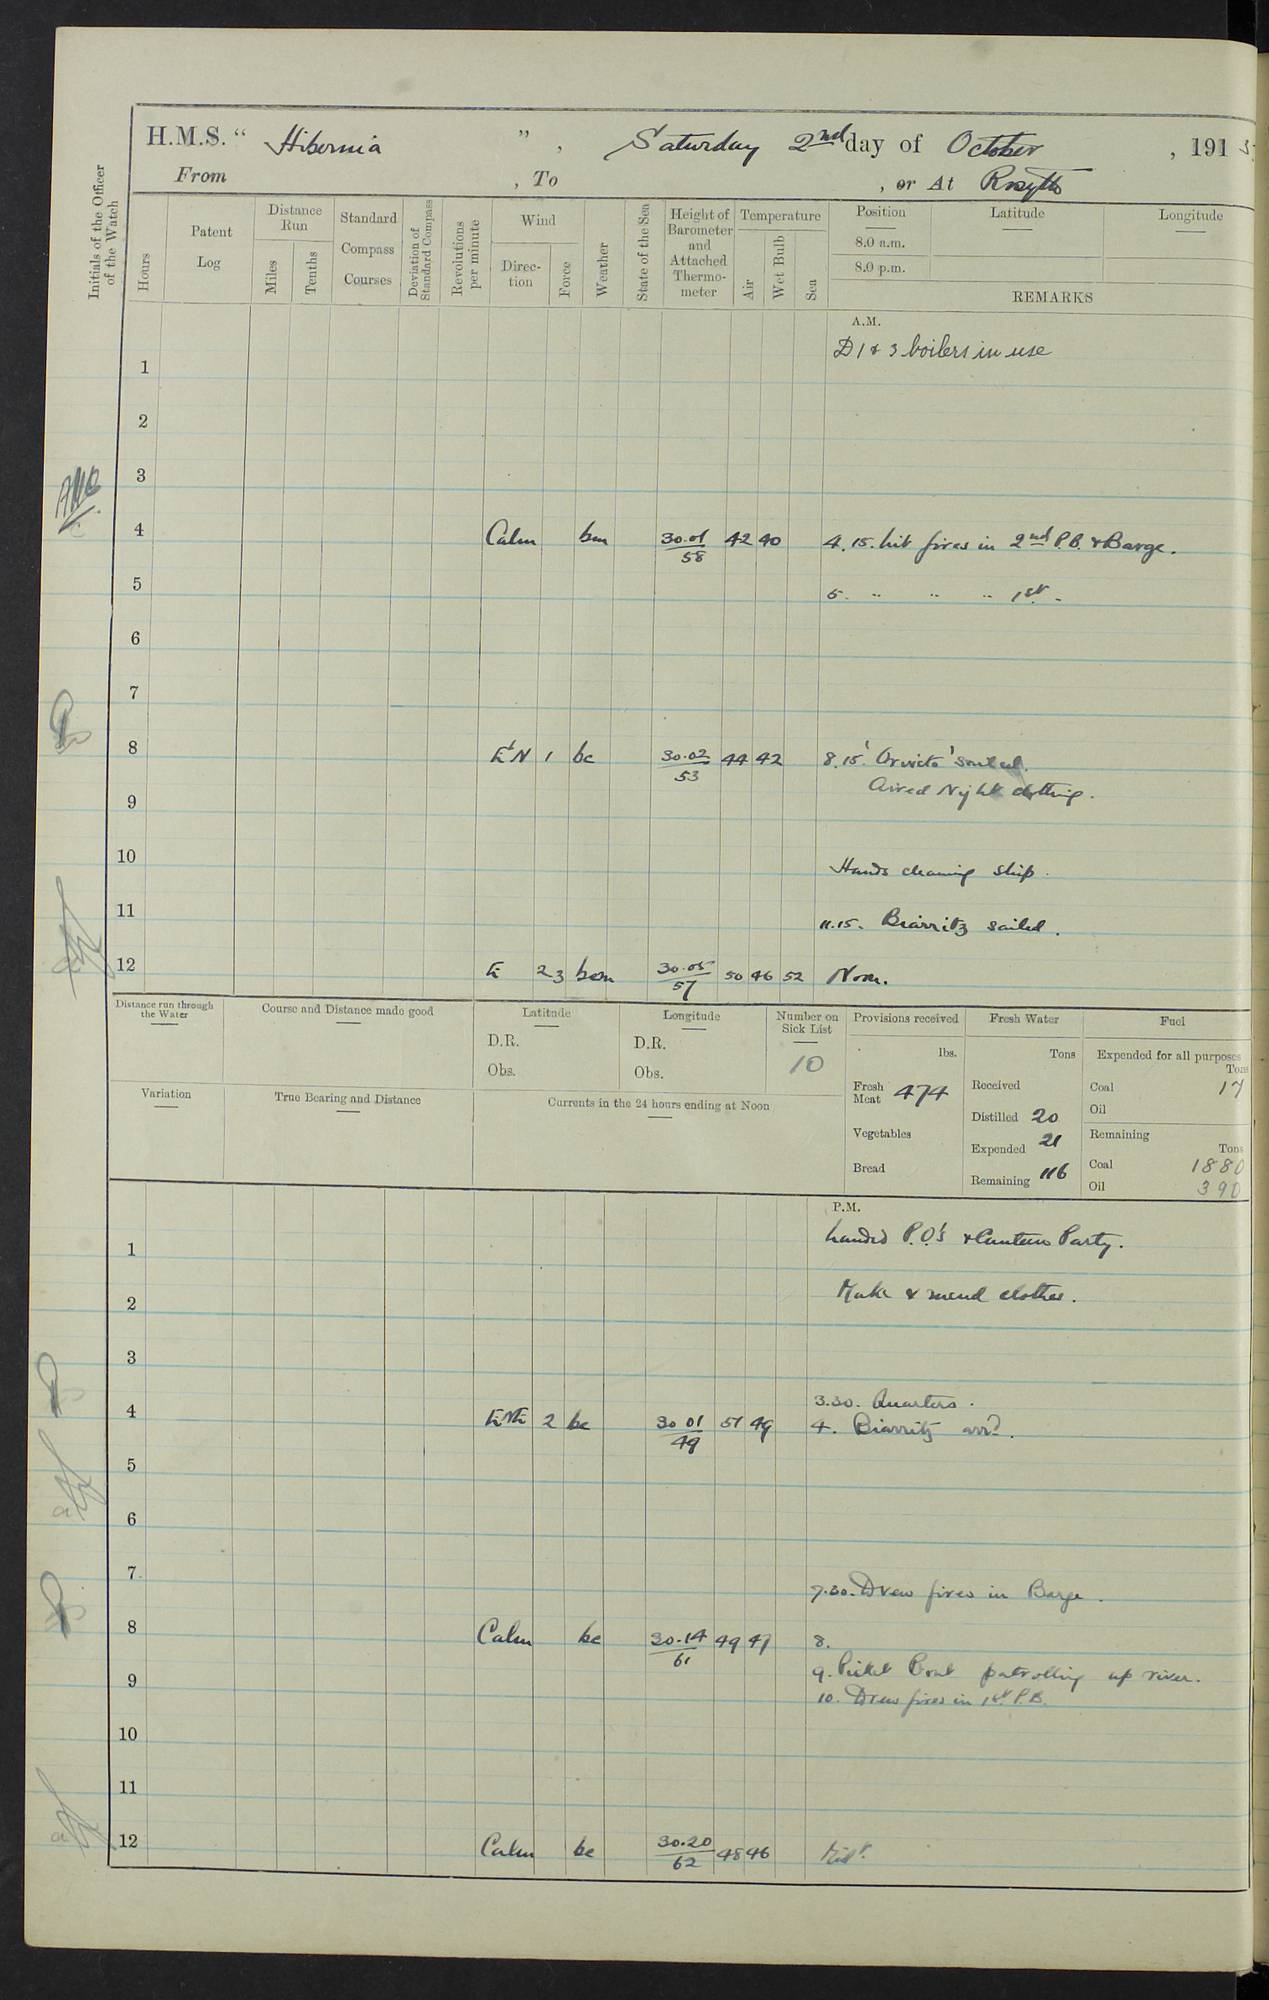 H.M.S. " Hibernia ", Saturday 2nd day of October, 1915
From , To , or At Rosyth
Initials of the Officer of the Watch
Hours
Patent Log
Distance Run
Miles
Tenths
Standard Compass Courses
Deviation of Standard Compass
Revolutions per minute
Wind
Direction
Force
Weather
State of the Sea
Height of Barometer and Attached Thermometer
Temperature
Air
Wet Bulb
Sea
Position
8.0 a.m.
8.0 p.m.
Latitude
Longitude
REMARKS
A.M.
D1 & 3 boilers in use
1
2
3
4 Calm bm 30.01 58 42 40 4.15. lit fires in 2nd P.B. & Barge.
5 5. " " " 1st.
6
7
8 E'N 1 bc 30.02 53 44 42 8.15 'Orvieto' sailed.
Aired Night clothing.
9
10 Hands cleaning ship.
11 11.15. Biarritz sailed.
12 E 2-3 bcm 30.05 57 50 46 52 Noon.
Distance run through the Water
Course and Distance made good
Latitude
D.R.
Obs.
Longitude
D.R.
Obs.
Number on Sick List
10
Provisions received
lbs.
Fresh Meat 474
Vegetables
Bread
Fresh Water
Tons
Received
Distilled 20
Expended 21
Remaining 116
Fuel
Expended for all purposes
Tons
Coal 17
Oil
Remaining
Tons
Coal 1880
Oil 390
Variation
True Bearing and Distance
Currents in the 24 hours ending at Noon
P.M.
1 Landed P.O.'s & Canteen Party.
2 Make & mend clothes.
3
3.30. Quarters.
4 ENE 2 bc 30 01 49 51 49 4. Biarritz arrd.
5
6
7
7.30. Drew fires in Barge.
8 Calm bc 30.14 61 49 47 8.
9. Picket Boat patrolling up river.
9
10. Drew fires in 1st P.B.
10
11
12 Calm bc 30.20 62 48 46 Midt.